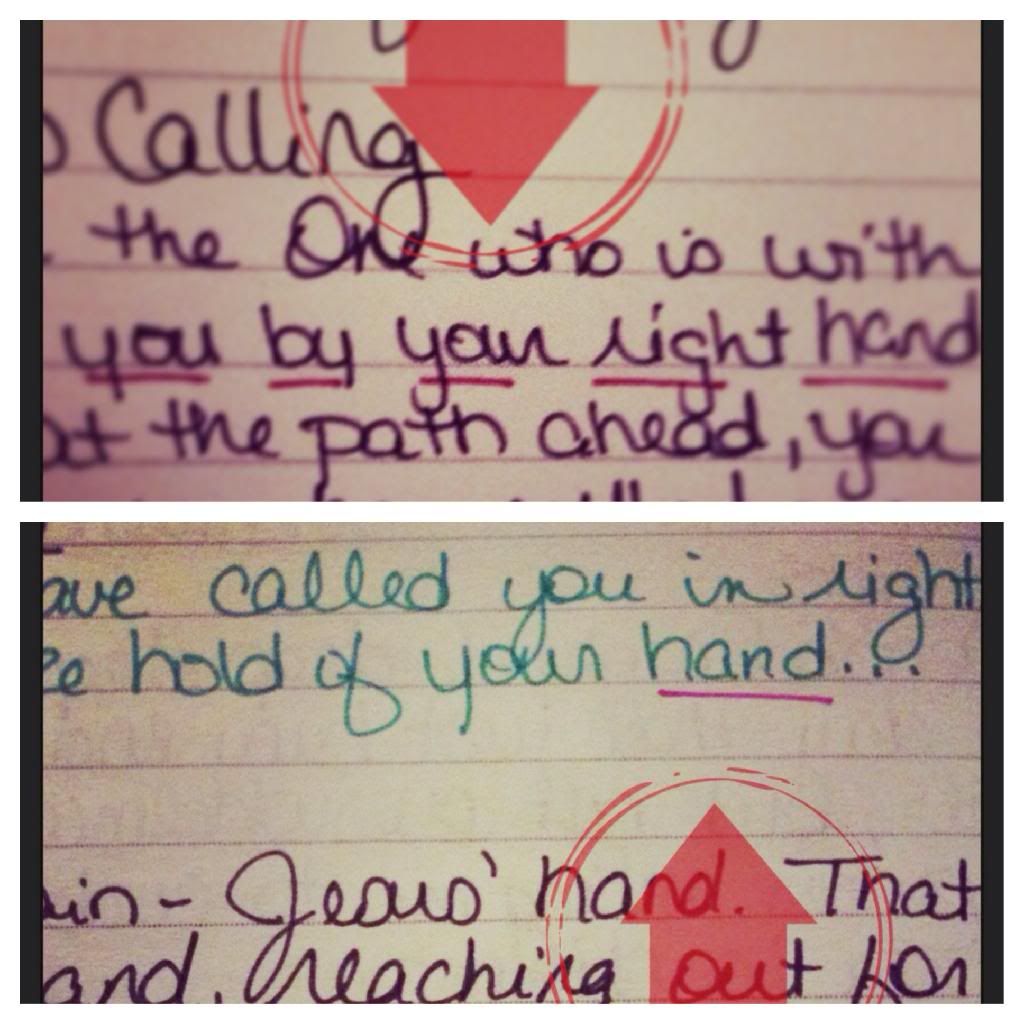 Calling
the One who is with
you by your right hand
at the path ahead, you
ave called you in right
ke hold of your hand...
in - Jesus' hand. That
and, reaching out for